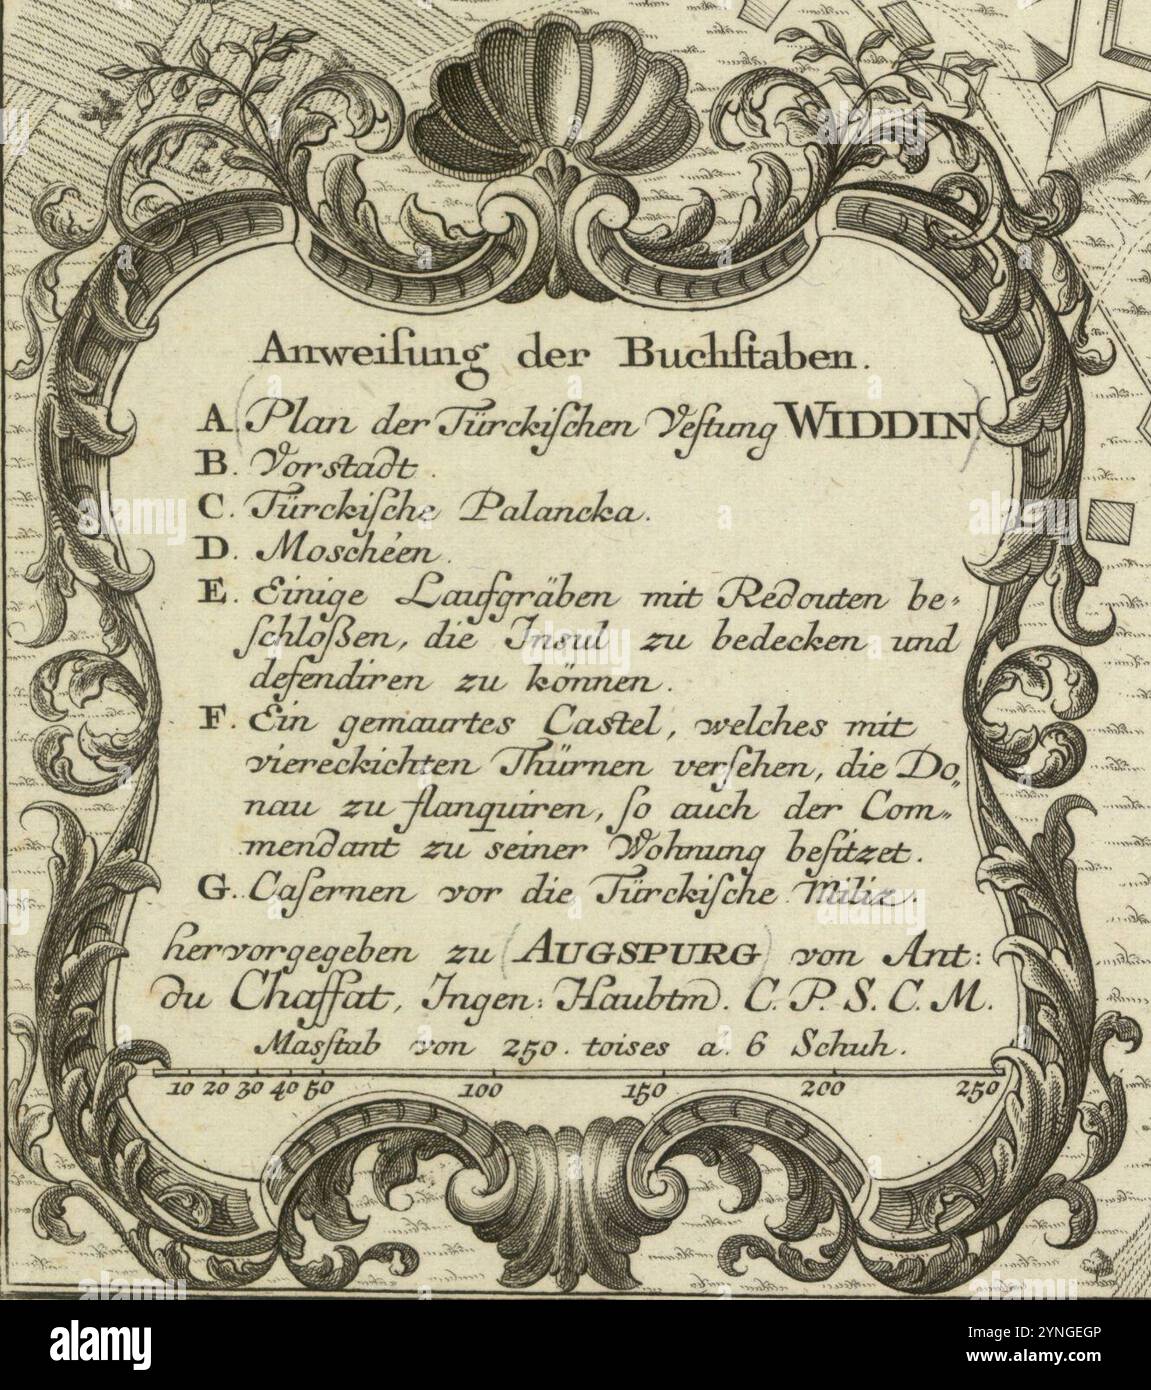 Anweiſung der Buchſtaben.
A. (Plan der Türckiſchen Veſtung WIDDIN)
B. Vorstadt.
C. Türckiſche Palancka.
D. Moschéen.
E. Einige Laufgräben mit Redouten be⸗
ſchloßen, die Inſul zu bedecken und
defendiren zu können.
F. Ein gemaurtes Castel, welches mit
viereckichten Thürnen verſehen, die Do⸗
nau zu flanquiren, ſo auch der Com⸗
mendant zu seiner Wohnung beſitzet.
G. Caſernen vor die Türckiſche Miliz.
hervorgegeben zu (AUGSPURG) von Ant:
du Chaffat, Ingen: Haubtm. C. P. S. C. M.
Masſtab von 250. toises a. 6 Schuh.
10 20 30 40 50 100 150 200 250
alamy
Image ID: 2YNGEGP
www.alamy.com